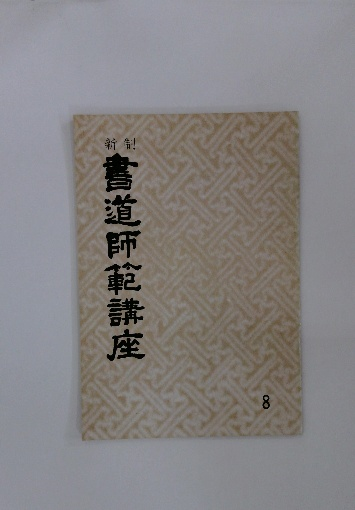 新制
書道師範講座
8